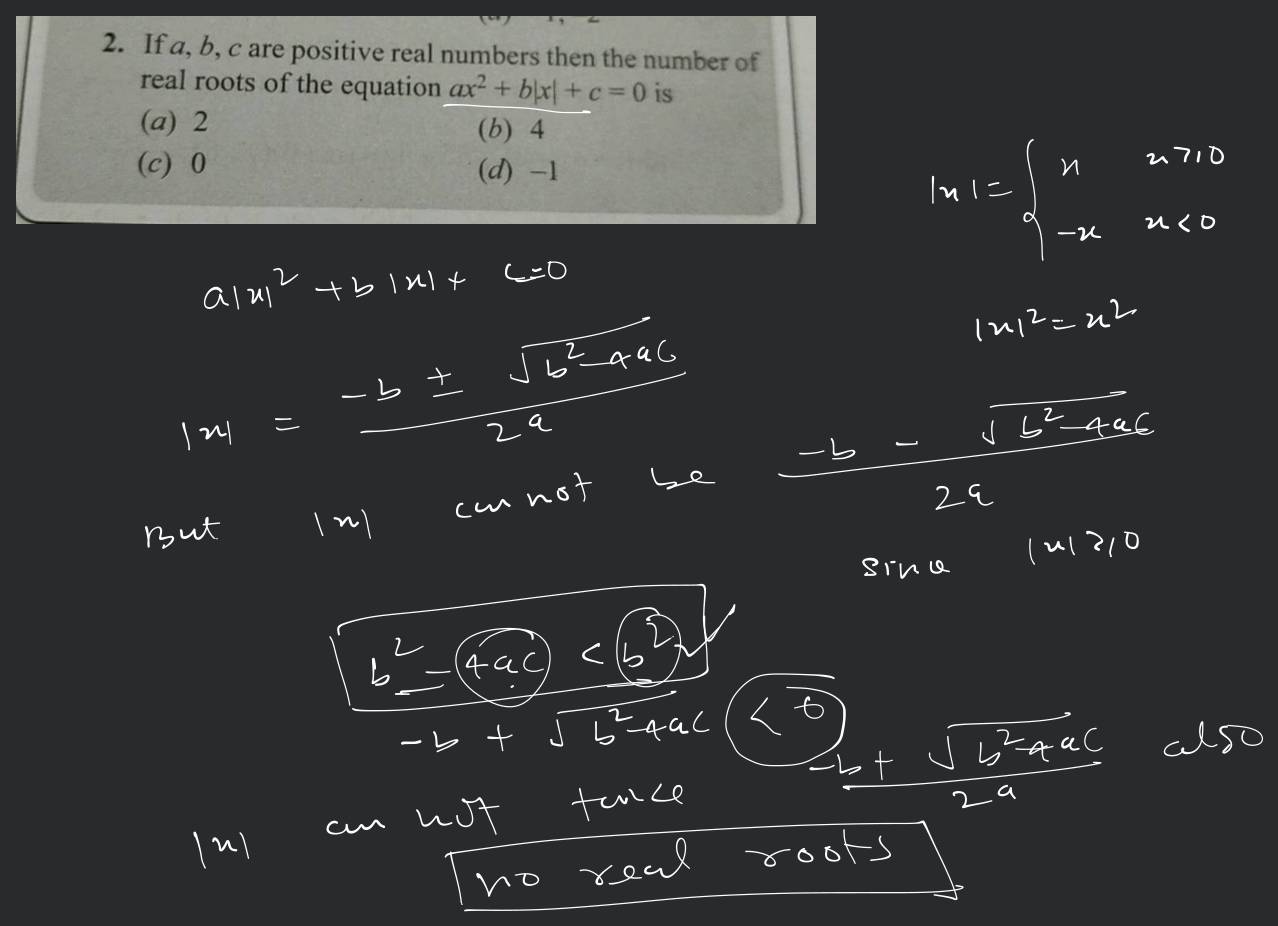 2. If a, b, c are positive real numbers then the number of
real roots of the equation ax² + b|x| + c = 0 is
(a) 2 (b) 4
(c) 0 (d) –1
|x| = { x x ≥ 0
-x x < 0
a|x|² + b|x| + c=0
|x|² = x²
|x| = -b ± √b²-4ac / 2a
But |x| can not be -b - √b²-4ac / 2a
since |x| ≥ 0
b² - 4ac < b²
-b + √b²-4ac < 0
|x| can not take -b + √b²-4ac / 2a also
no real roots